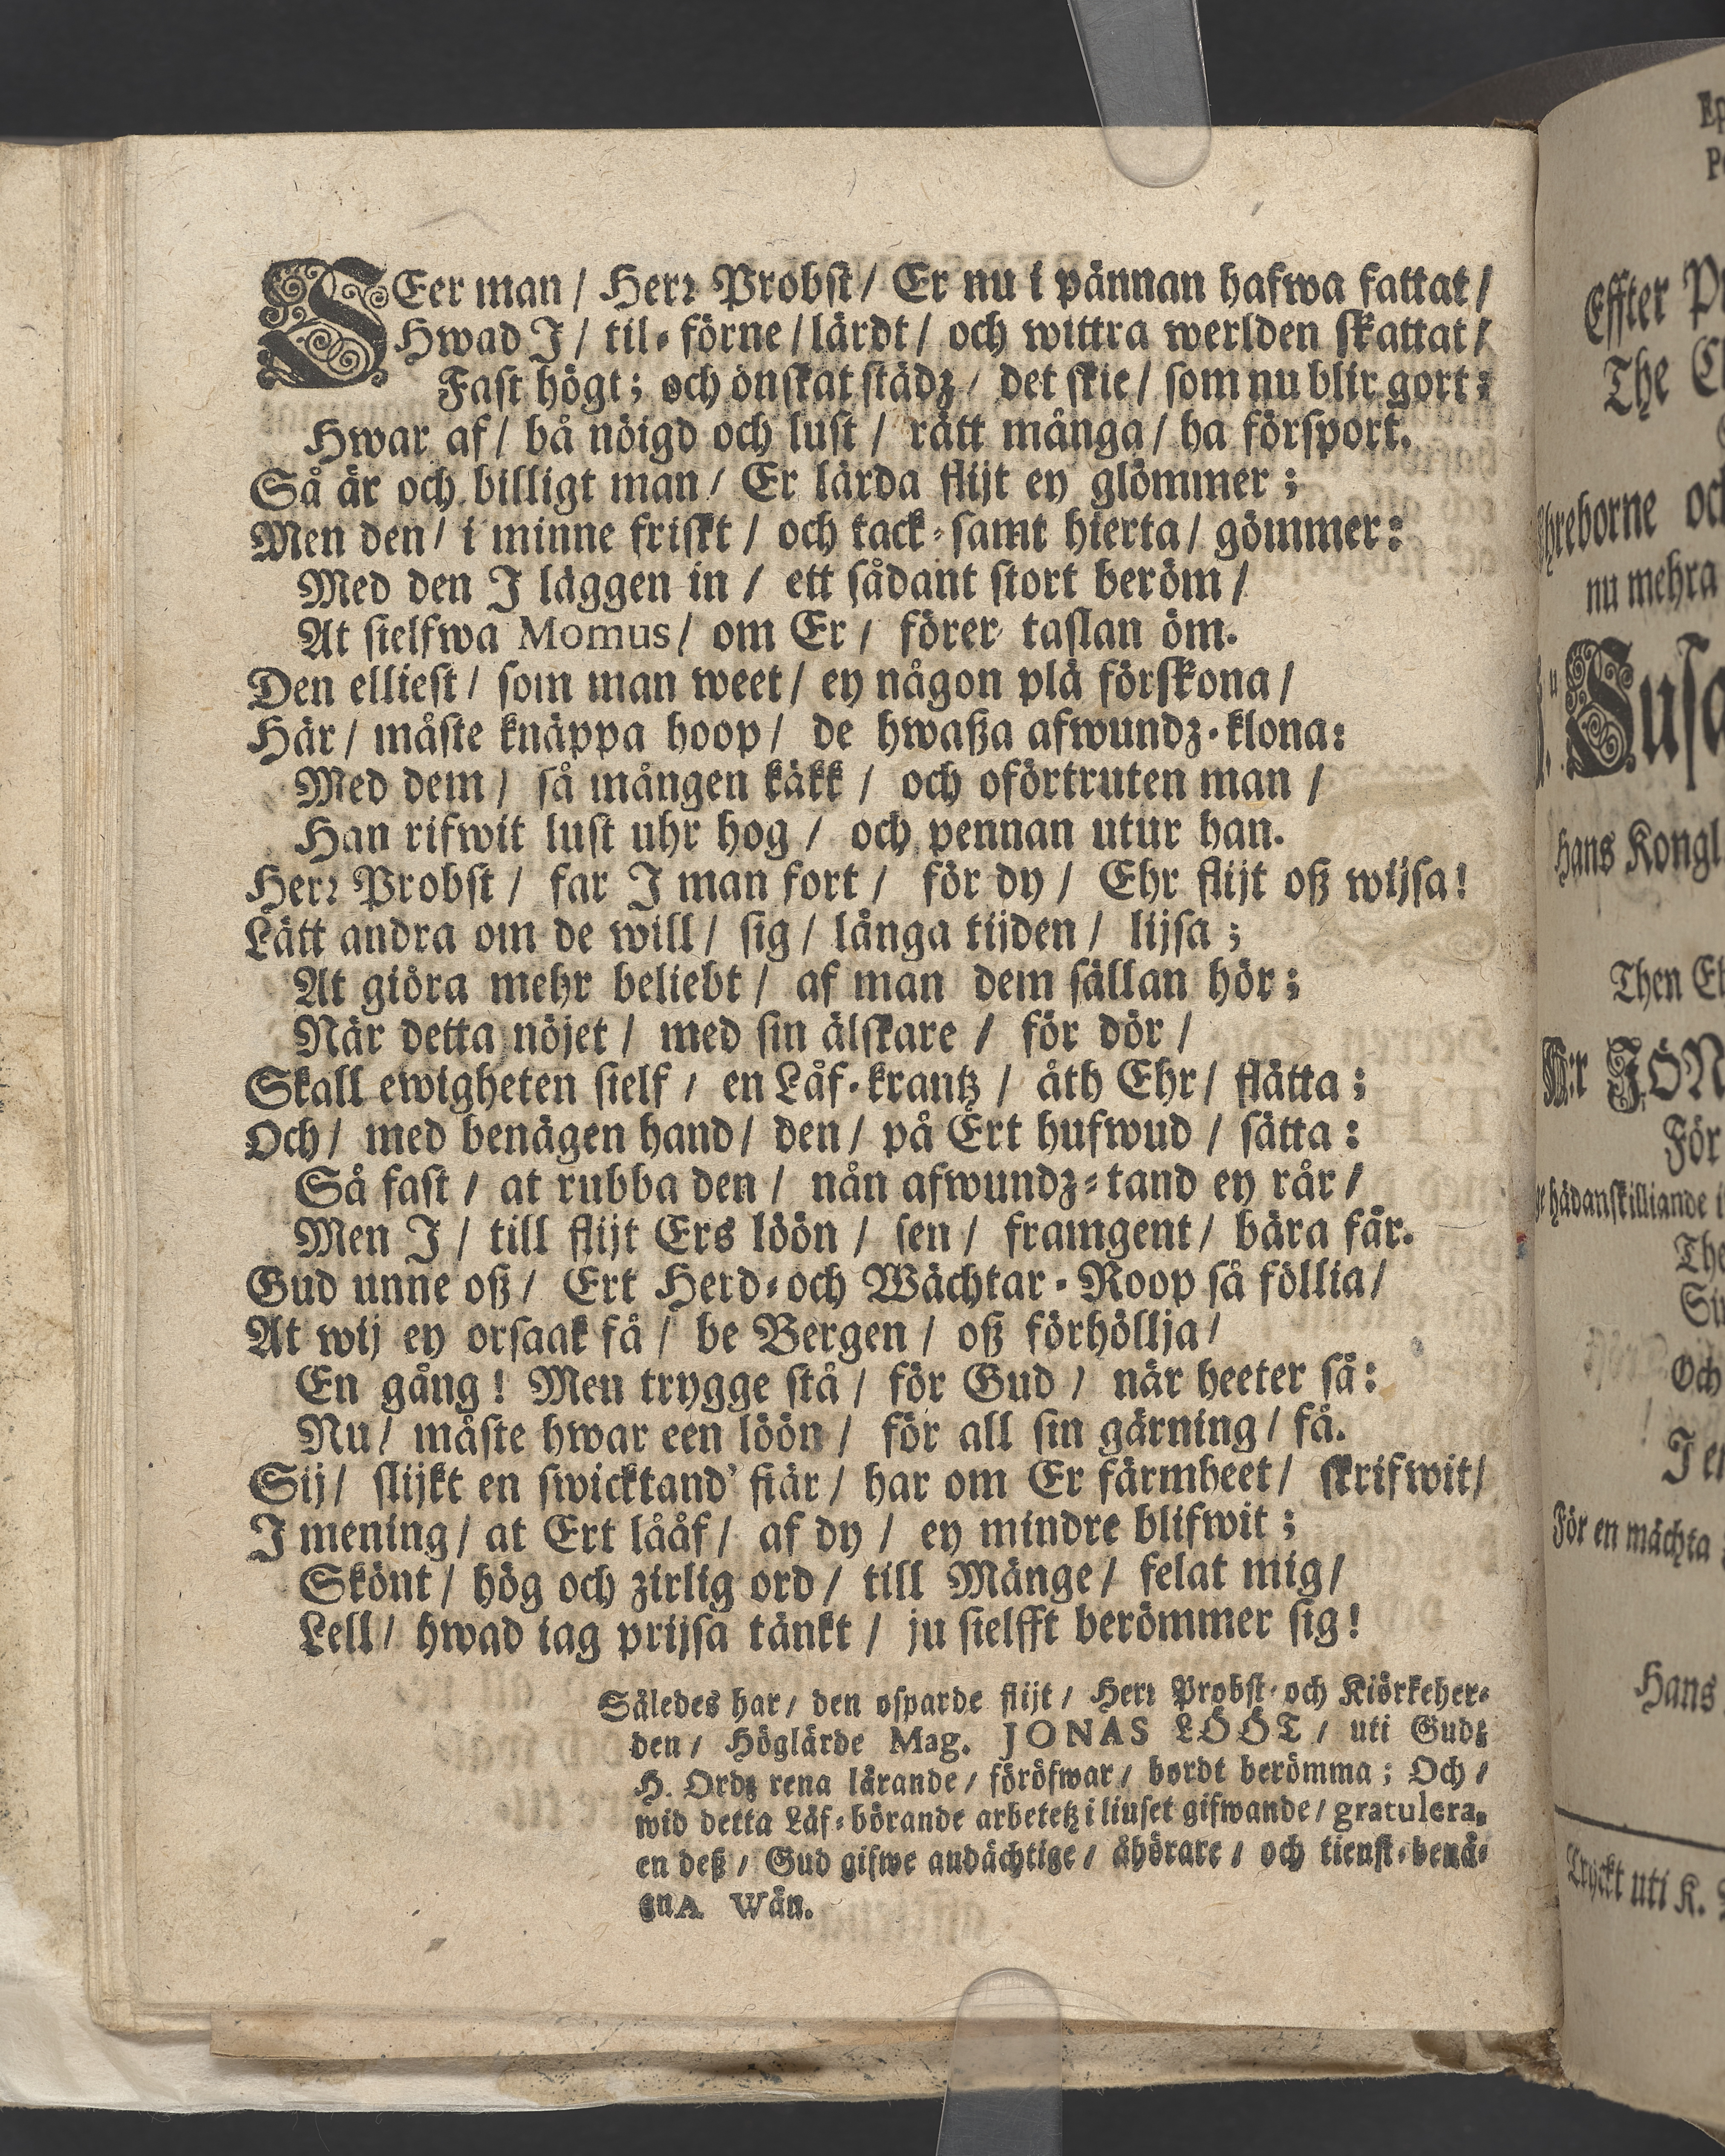 SEer man / Herr Probst / Er nu i pännan hafwa fattat /
Hwad I / til-förne / lärdt / och wittra werlden skattat /
Fast högt; och önskat städz / det skie / som nu blir gort:
Hwar af / bå nöigd och lust / rätt många / ha försport.
Så är och billigt man / Er lärda flijt ey glömmer;
Men den / i minne friskt / och tack-samt hierta / gömmer:
Med den I läggen in / ett sådant stort beröm /
At sielfwa Momus / om Er / förer taslan öm.
Den elliest / som man weet / ey någon plä förskona /
Här / måste knäppa hoop / de hwaßa afwundz-klona:
Med dem / så mången käkk / och oförtruten man /
Han rifwit lust uhr hog / och pennan utur han.
Herr Probst / far I man fort / för dy / Ehr flijt oß wijsa!
Lätt andra om de will / sig / långa tijden / lijsa;
At giöra mehr beliebt / af man dem sällan hör;
När detta nöjet / med sin älskare / för dör /
Skall ewigheten sielf / en Låf-krantz / åth Ehr / flätta;
Och / med benägen hand / den / på Ert hufwud / sätta:
Så fast / at rubba den / nån afwundz-tand ey rår /
Men I / till flijt Ers löön / sen / framgent / bära får.
Gud unne oß / Ert Herd-och Wächtar-Roop så föllia /
At wij ey orsaak få / be Bergen / oß förhöllja /
En gång! Men trygge stå / för Gud / när heeter så:
Nu / måste hwar een löön / för all sin gärning / få.
Sij / slijkt en swicktand' fiär / har om Er färmheet / skrifwit /
I mening / at Ert lååf / af dy / ey mindre blifwit;
Skönt / hög och zirlig ord / till Mänge / felat mig /
Lell / hwad iag prijsa tänkt / ju sielfft berömmer sig!
Således har / den osparde flijt / Herr Probst-och Kiörkeher-
den / Höglärde Mag. JONAS LÖÖT / uti Gudz
H. Ordz rena lärande / föröfwar / bordt berömma; Och /
wid detta Låf-börande arbetetz i liuset gifwande / gratulera,
en deß / Gud gifwe andächtige / åhörare / och tienst-benä-
gnA Wän.
Effter
The
hreborne och
nu mehra
hans Kongl
Then
JÖN
För
hädanskilliande i
The
Och
I
För en mächta
Hans
Tryckt uti K.